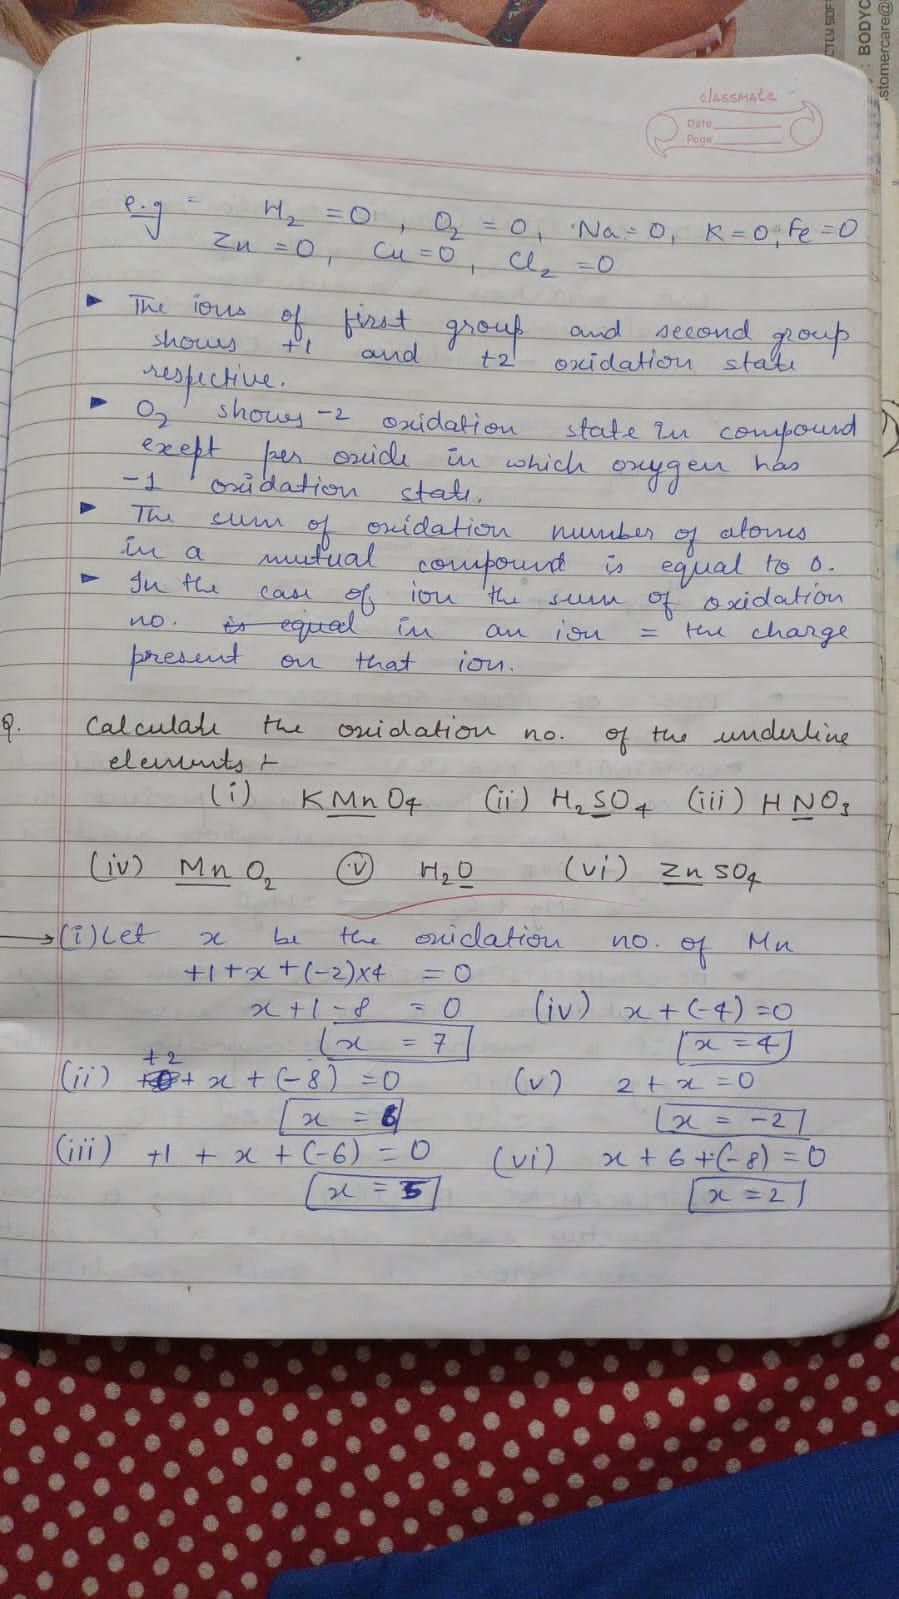 CTLM SOF
: BODYC
stomercare@
classmate
Date
Page
e.g - H2 = 0, O2 = 0, Na = 0, K = 0, Fe = 0
Zn = 0, Cu = 0, Cl2 = 0
► The ions of first group and second group
shows +1 and +2 oxidation state
respective.
► O2 shows -2 oxidation state in compound
exept per oxide in which oxygen has
-1 oxidation state.
► The sum of oxidation number of atoms
in a mutual compound is equal to 0.
► In the case of ion the sum of oxidation
no. is equal in an ion = the charge
present on that ion.
Q. Calculate the oxidation no. of the underline
elements :-
(i) KMnO4 (ii) H2SO4 (iii) HNO3
(iv) MnO2 (v) H2O (vi) ZnSO4
→ (i) Let x be the oxidation no. of Mn
+1 + x + (-2) x 4 = 0
x + 1 - 8 = 0
x = 7
(ii) +2 + x + (-8) = 0
x = 6
(iii) +1 + x + (-6) = 0
x = 5
(iv) x + (-4) = 0
x = 4
(v) 2 + x = 0
x = -2
(vi) x + 6 + (-8) = 0
x = 2